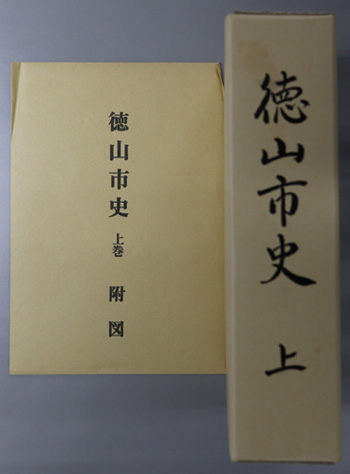 徳山市史 上
徳山市史 上巻 附図